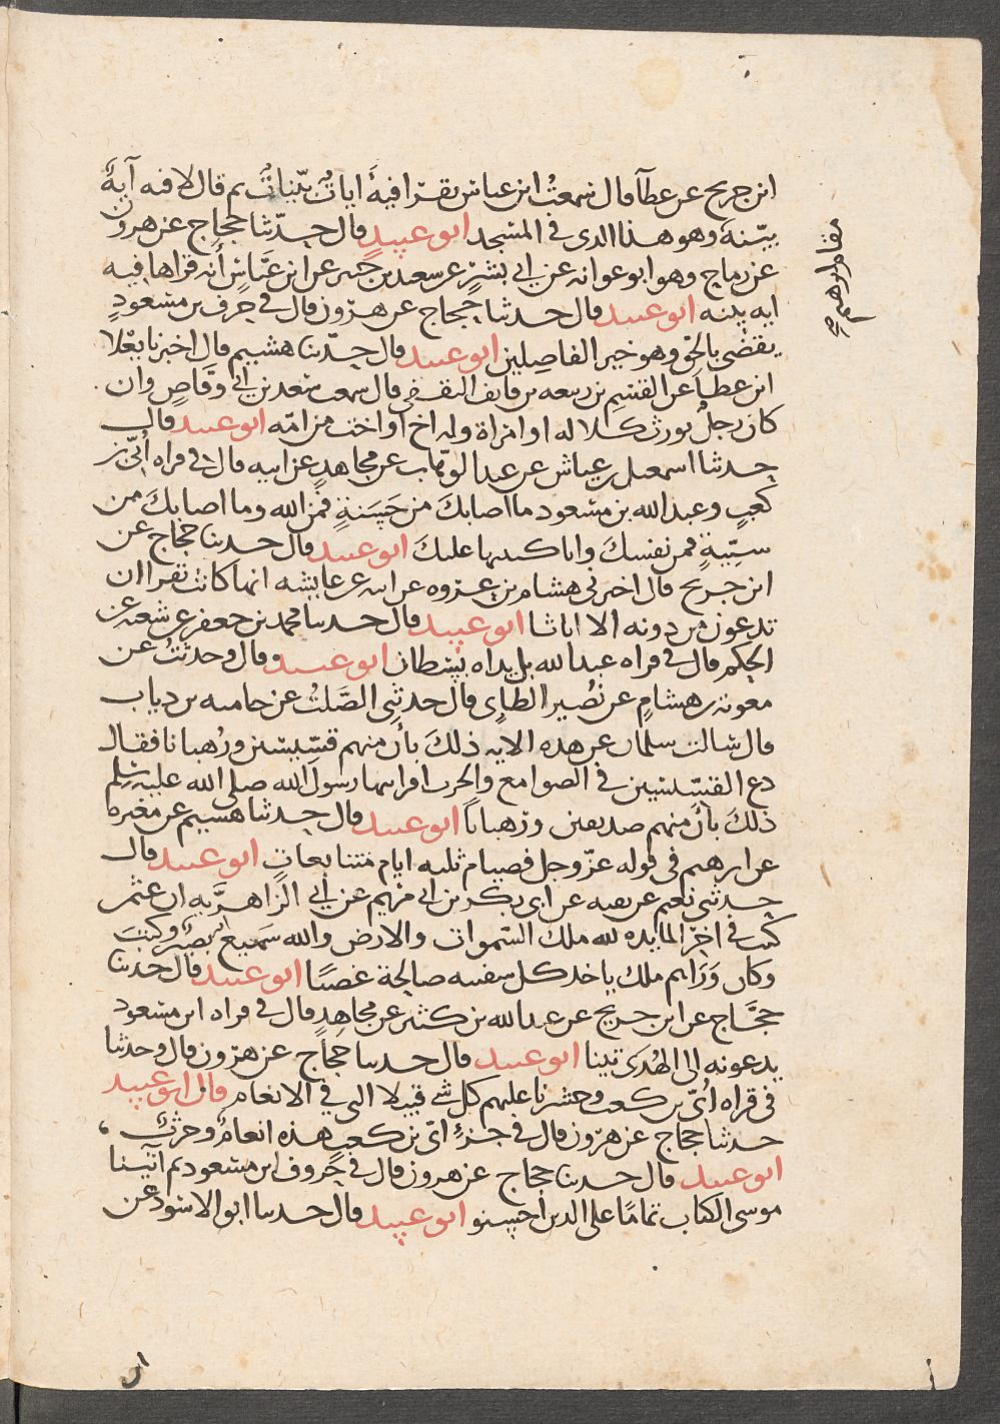 ابن جريج عن عطآ قال سمعتُ ابن عباس يقرا فيهِ ايات بيّنات ثم قال لا فيه آيةٌ
بيّنة وهو هذا الدى فى المسجد ابو عبيد قال حدّثنا حجاج عن هرون
مقام ابرهيم
عن رماح وهو ابو عوانه عن ابي بشرٍ عن سعيد بن جبير عن ابن عبّاسٍ أنه قراها فيه
ايه بينه ابو عبيد قال حدثنا حجاج عن هرون قال في حرف بن مسعودٍ
يقضى بالحق وهو خير الفاصِلين ابو عبيد قال حدّثنا هشيم قال اخبرنا يعْلا
ابن عطا عن القسم بن ربيعه بن قايف الثقفى قال سمعت سعد بن ابي وقّاصٍ وان
كان رجلٌ يورث كلاله او امراة وله اخ او اخت من امّه ابو عبيد قال
حدثنا اسمعيل بن عياش عن عبد الوهّاب عن مجاهدٍ عن ابيه قال في قراه أُبيّ بن
كعبٍ وعبد الله بن مسعود ما اصابكَ من حَسَنةٍ فمن الله وما اصابكَ من
سيّيةٍ فمن نفسكَ وانا كتبتها عليكَ ابو عبيد قال حدثنا حجاج عن
ابن جريج قال اخبرني هشام بن عروه عن ابيه عن عايشه انها كانت تقرا ان
تدعون من دونه الا اياثا ابو عبيد قال حدثنا محمد بن جعفر عن شعبه عن
الحكم قال في قراه عبد الله بل يداه بُسْطان ابو عبيد وقال وحدثتُ عن
معوية بن هشامٍ عن نُصير الطاىِ قال حدثنِى الصَّلتُ عن حاميه بن دياب
قال سالت سلمان عن هذه الايه ذلكَ بأن منهم قسّيسين ورُهبانا فقال
دع القسّيسين في الصوامع والخرب اقرانيها رسول الله صلى الله عليه وسلم
ذلكَ بأن منهم صديقين ورُهباناً ابو عبيد قال حدثنا هشيم عن مغيرة
عن ابرهيم في قوله عزّ وجل فصيام ثلثه ايام متتابعاتٍ ابو عبيد قال
حدثني نعيم عن بقيه عن ابي بكر بن ابي مريم عن ابي الزاهريّه ان عثمن
كتب في اخر المايده لله ملك السّموات والارض والله سَميع بصيرٌ وكتبَ
وكان وَرَاهم ملك ياخذ كل سفينه صالحة غصبًا ابو عبيد قال حدثنا
حجّاج عن ابن جريج عن عبد الله بن كثير عن مجاهدٍ قال في قراه ابن مسعود
يدعونه الى الهُدى تينا ابو عبيد قال حدثنا حجاج عن هرون قال وحدثنا
في قراه أُبيّ بن كعب وحشرنا عليهم كل شي قبيلا التى في الانعام قال ابو عبيد
حدثنا حجاج عن هرون قال في جزءِ ابيّ بن كعبٍ هذه انعامٌ وحرثٌ ،
ابو عبيد قال حدثنا حجاج عن هرون قال في حروف ابن مسعود ثم آتينا
موسى الكتاب تمامًا على الذين احسنو ابو عبيد قال حدثنا ابو الاسود عن